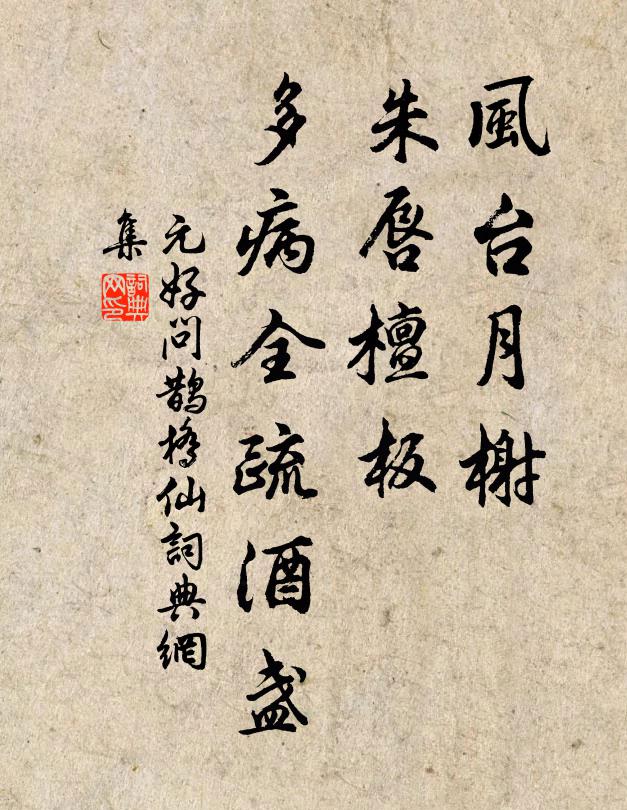 風台月榭
朱唇檀板
多病全疏酒盏
元好问鹊橋仙詞典網
集
詞典
网印